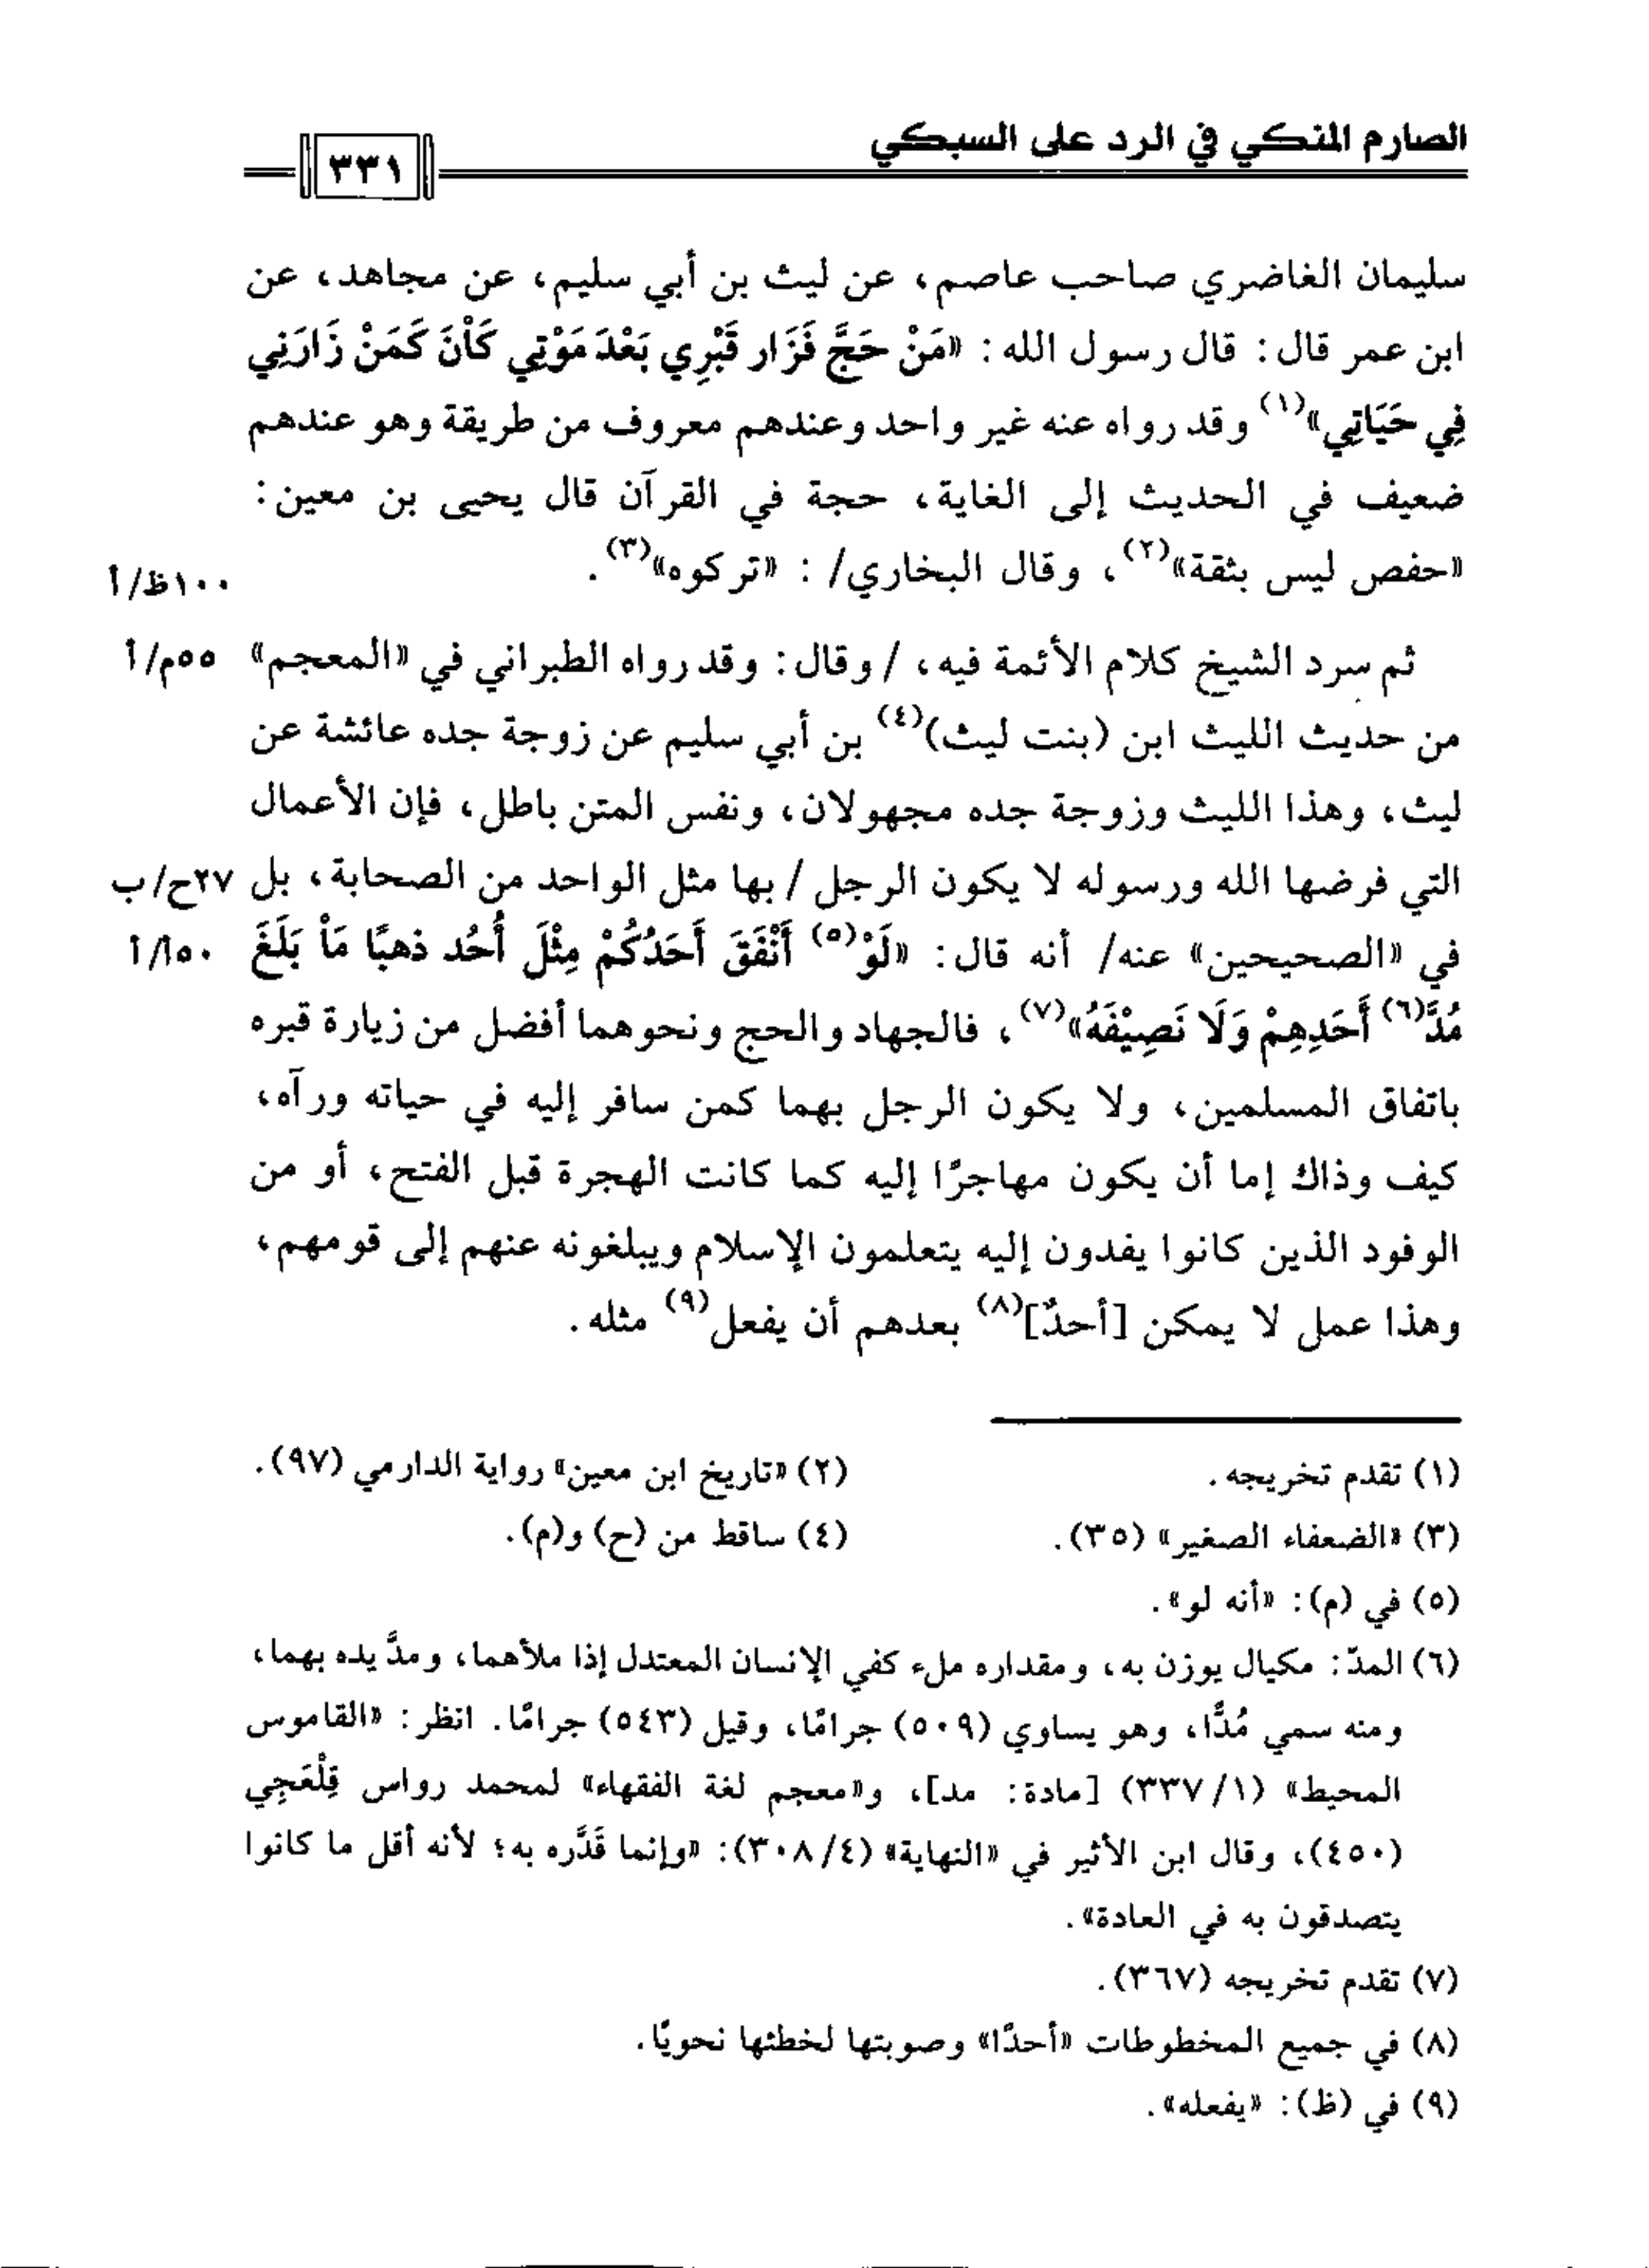 الصارم المنكي في الرد على السبكي
٣٣١
سليمان الغاضري صاحب عاصم، عن ليث بن أبي سليم، عن مجاهد، عن
ابن عمر قال: قال رسول الله: «مَنْ حَجَّ فَزَار قَبْرِي بَعْدَ مَوْتِي كَاْنَ كَمَنْ زَارَنِي
فِي حَيَاتِي»(١) وقد رواه عنه غير واحد وعندهم معروف من طريقة وهو عندهم
ضعيف في الحديث إلى الغاية، حجة في القرآن قال يحيى بن معين:
«حفص ليس بثقة»(٢)، وقال البخاري/ : «تركوه»(٣).
١٠٠ظ/أ
ثم سرد الشيخ كلام الأئمة فيه، / وقال: وقد رواه الطبراني في «المعجم»
٥٥م/أ
من حديث الليث ابن (بنت ليث)(٤) بن أبي سليم عن زوجة جده عائشة عن
ليث، وهذا الليث وزوجة جده مجهولان، ونفس المتن باطل، فإن الأعمال
التي فرضها الله ورسوله لا يكون الرجل / بها مثل الواحد من الصحابة، بل
٢٧ح/ب
في «الصحيحين» عنه/ أنه قال: «لَوْ(٥) أَنْفَقَ أَحَدُكُمْ مِثْلَ أُحُد ذهبًا مَاْ بَلَغَ
٥٠أ/أ
مُدَّ(٦) أَحَدِهِمْ وَلَا نَصِيْفَهُ»(٧)، فالجهاد والحج ونحوهما أفضل من زيارة قبره
باتفاق المسلمين، ولا يكون الرجل بهما كمن سافر إليه في حياته ورآه،
كيف وذاك إما أن يكون مهاجرًا إليه كما كانت الهجرة قبل الفتح، أو من
الوفود الذين كانوا يفدون إليه يتعلمون الإسلام ويبلغونه عنهم إلى قومهم،
وهذا عمل لا يمكن [أحدٌ](٨) بعدهم أن يفعل(٩) مثله.
(١) تقدم تخريجه.
(٢) «تاريخ ابن معين» رواية الدارمي (٩٧).
(٣) «الضعفاء الصغير» (٣٥).
(٤) ساقط من (ح) و(م).
(٥) في (م): «أنه لو».
(٦) المدّ: مكيال يوزن به، ومقداره ملء كفي الإنسان المعتدل إذا ملأهما، ومدَّ يده بهما،
ومنه سمي مُدًّا، وهو يساوي (٥٠٩) جرامًا، وقيل (٥٤٣) جرامًا. انظر: «القاموس
المحيط» (١/ ٣٣٧) [مادة: مد]، و«معجم لغة الفقهاء» لمحمد رواس قِلْعَجِي
(٤٥٠)، وقال ابن الأثير في «النهاية» (٣٠٨/٤): «وإنما قَدَّره به؛ لأنه أقل ما كانوا
يتصدقون به في العادة».
(٧) تقدم تخريجه (٣٦٧).
(٨) في جميع المخطوطات «أحدًا» وصوبتها لخطئها نحويًا.
(٩) في (ظ): «يفعله».